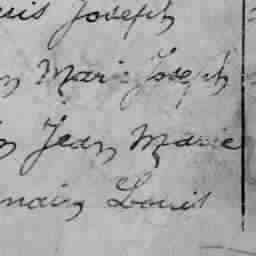 uis Joseph
n Marie Joseph
n Jean Marie
nain Louis